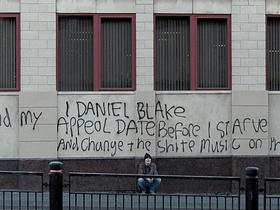 I DANIEL BLAKE
nd my APPEOL DATE BeFore I STArve
And CHANGE THE SHITE MUSIC ON TH